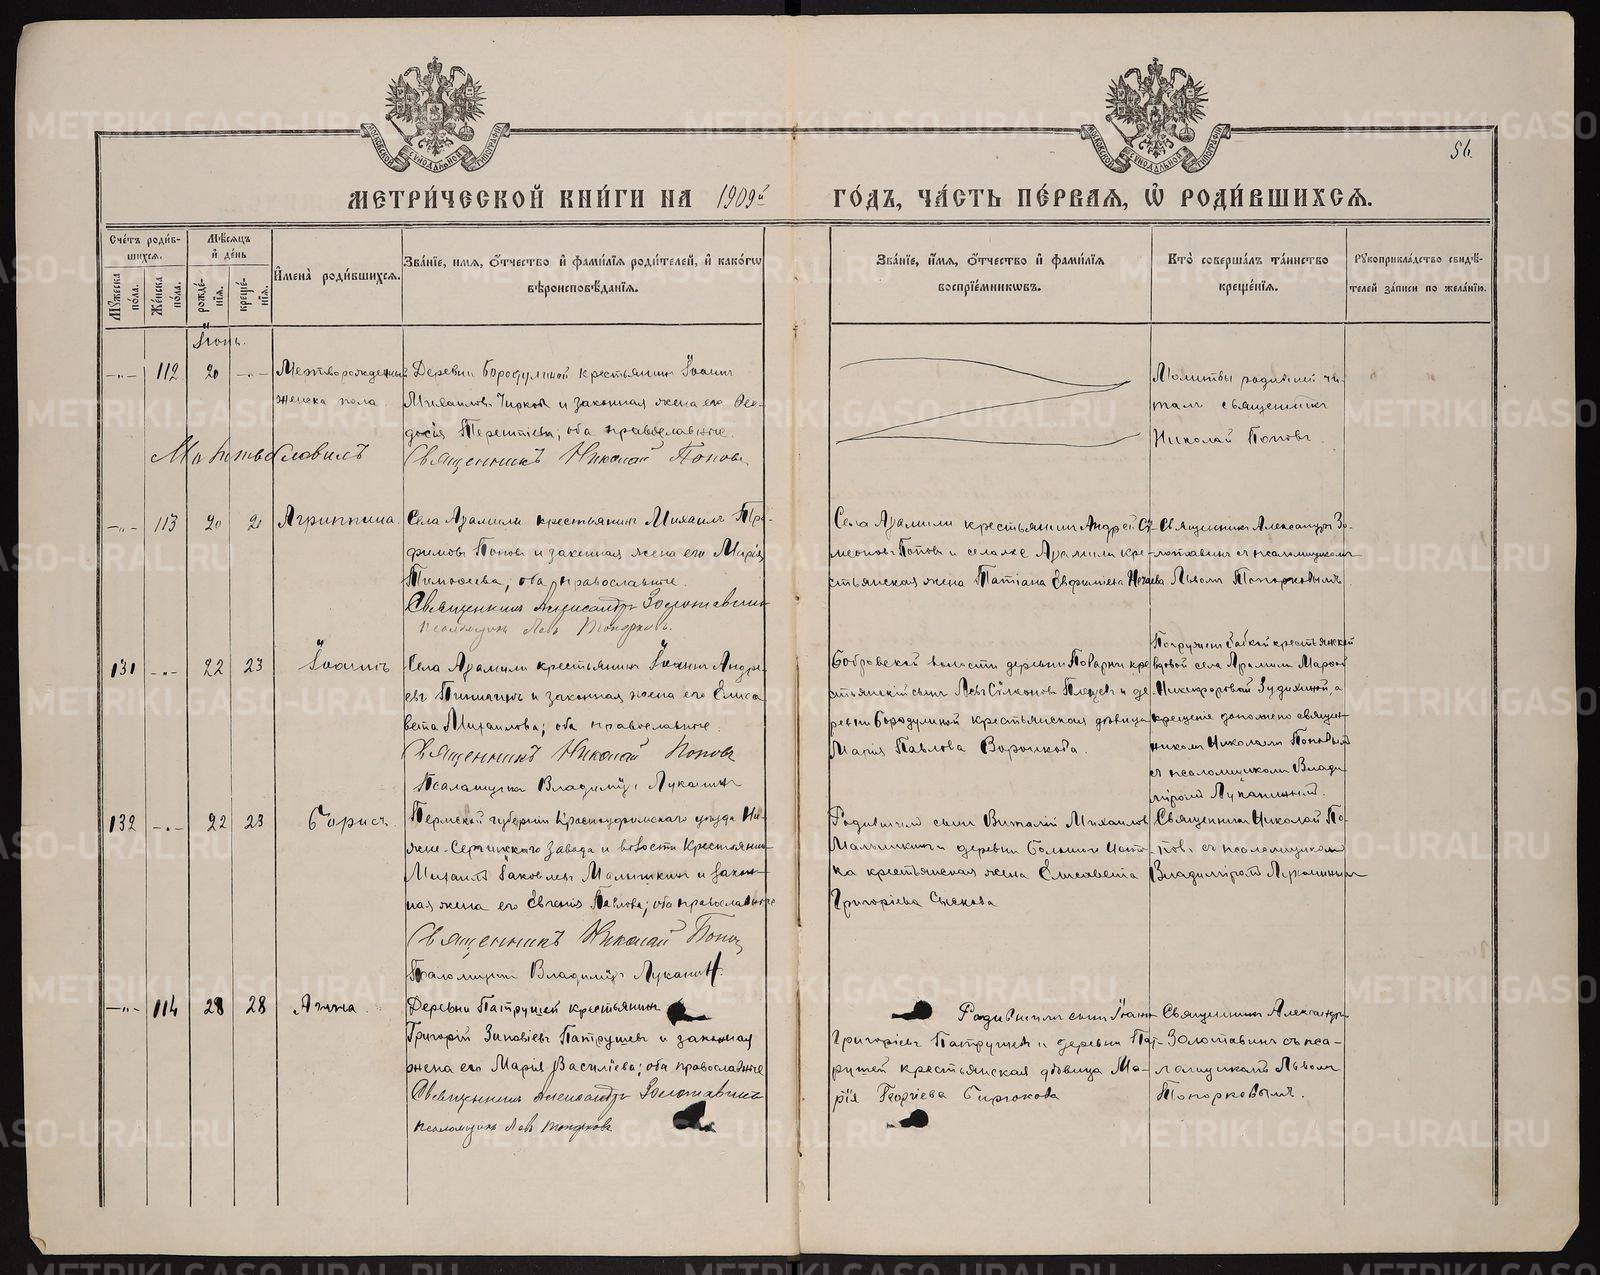 МЕТРИ́ЧЕСКОЙ КНИ́ГИ НА 1909й ГО́ДЪ, ЧА́СТЬ ПЕ́РВАЯ, Ѡ РОДИ́ВШИХСЯ.
56.
Сче́тъ роди́в-
шихся.
Мꙋ́жеска по́ла.
Же́нска по́ла.
Мѣ́сяцъ и де́нь
рожде́-нія.
креще́-нія.
Имена̀ роди́вшихся.
Зва́ніе, имя, о́тчество и фами́лія роди́телей, и како́гѡ
вѣроисповѣ́данія.
Зва́ніе, и́мя, о́тчество и фами́лія
воспріе́мникѡвъ.
Кто̀ соверша́лъ та́инство
креще́нія.
Рꙋкоприкла́дство свидѣ́-
телей за́писи по жела́нію.
Іюнь.
—„— 112 20 —„— Мертворожденный
женска пола
Деревни Бородулиной крестьянинъ Іоаннъ
Михаиловъ Чирковъ и законная жена его Ѳео-
досія Терентіева, оба православные.
Священникъ Николай Поповъ
Молитвы родильной чи-
талъ священникъ
Николай Поповъ.
—„— 113 20 21 Агриппина.
Села Арамили крестьянинъ Михаилъ Тро-
фимовъ Поповъ и законная жена его Марія
Тимоѳеева, оба православные.
Священникъ Александръ Золотавинъ
псаломщикъ Левъ Топорковъ.
Села Арамили крестьянинъ Андрей Си-
меоновъ Поповъ и села же Арамили кре-
стьянская жена Татіана
Священникъ Александръ Зо-
лотавинъ съ псаломщикомъ
Львомъ Топорковымъ.
131 —„— 22 23 Іоаннъ
Села Арамили крестьянинъ Іоаннъ Андре-
евъ и законная жена его Елиса
вета Михаилова; оба православные.
Священникъ Николай Поповъ
Псаломщикъ Владиміръ Луканинъ
Бобровской волости деревни кре
стьянскій сынъ Левъ и де
ревни Бородулиной крестьянская дѣвица
Марія Павлова Воронкова.
Погруженъ бабкой крестьянской
вдовой села Арамили Марѳой
Никифоровой Зудихиной, а
крещеніе дополнено священ-
никомъ Николаемъ Поповымъ
съ псаломщикомъ Влади
міромъ Луканинымъ.
132 —„— 22 23 Борисъ.
Пермской губерніи Красноуфимскаго уѣзда Ни-
жне-Сергинскаго завода и волости крестьянинъ
Михаилъ Яковлевъ Малышкинъ и закон-
ная жена его Евгенія Павлова; оба православные
Священникъ Николай Поповъ
Псаломщикъ Владиміръ Луканинъ
Родившимъ сынъ Виталій Михаиловъ
Малышкинъ и деревни
ка крестьянская жена Елисавета
Григоріева Сыскова
Священникъ Николай По-
повъ съ псаломщикомъ
Владиміромъ Луканинымъ
—„— 114 28 28 Анна.
Деревни Патрушей крестьянинъ
Григорій Зиновіевъ Патрушевъ и законная
жена его Марія Василіева; оба православные
Священникъ Александръ Золотавинъ
псаломщикъ Левъ Топорковъ
Родившихъ сынъ Іоаннъ
Григоріевъ Патрушевъ и деревни Пат-
рушей крестьянская дѣвица Ма-
рія Георгіева Бирюкова
Священникъ Александръ
Золотавинъ съ пса-
ломщикомъ Львомъ
Топорковымъ.